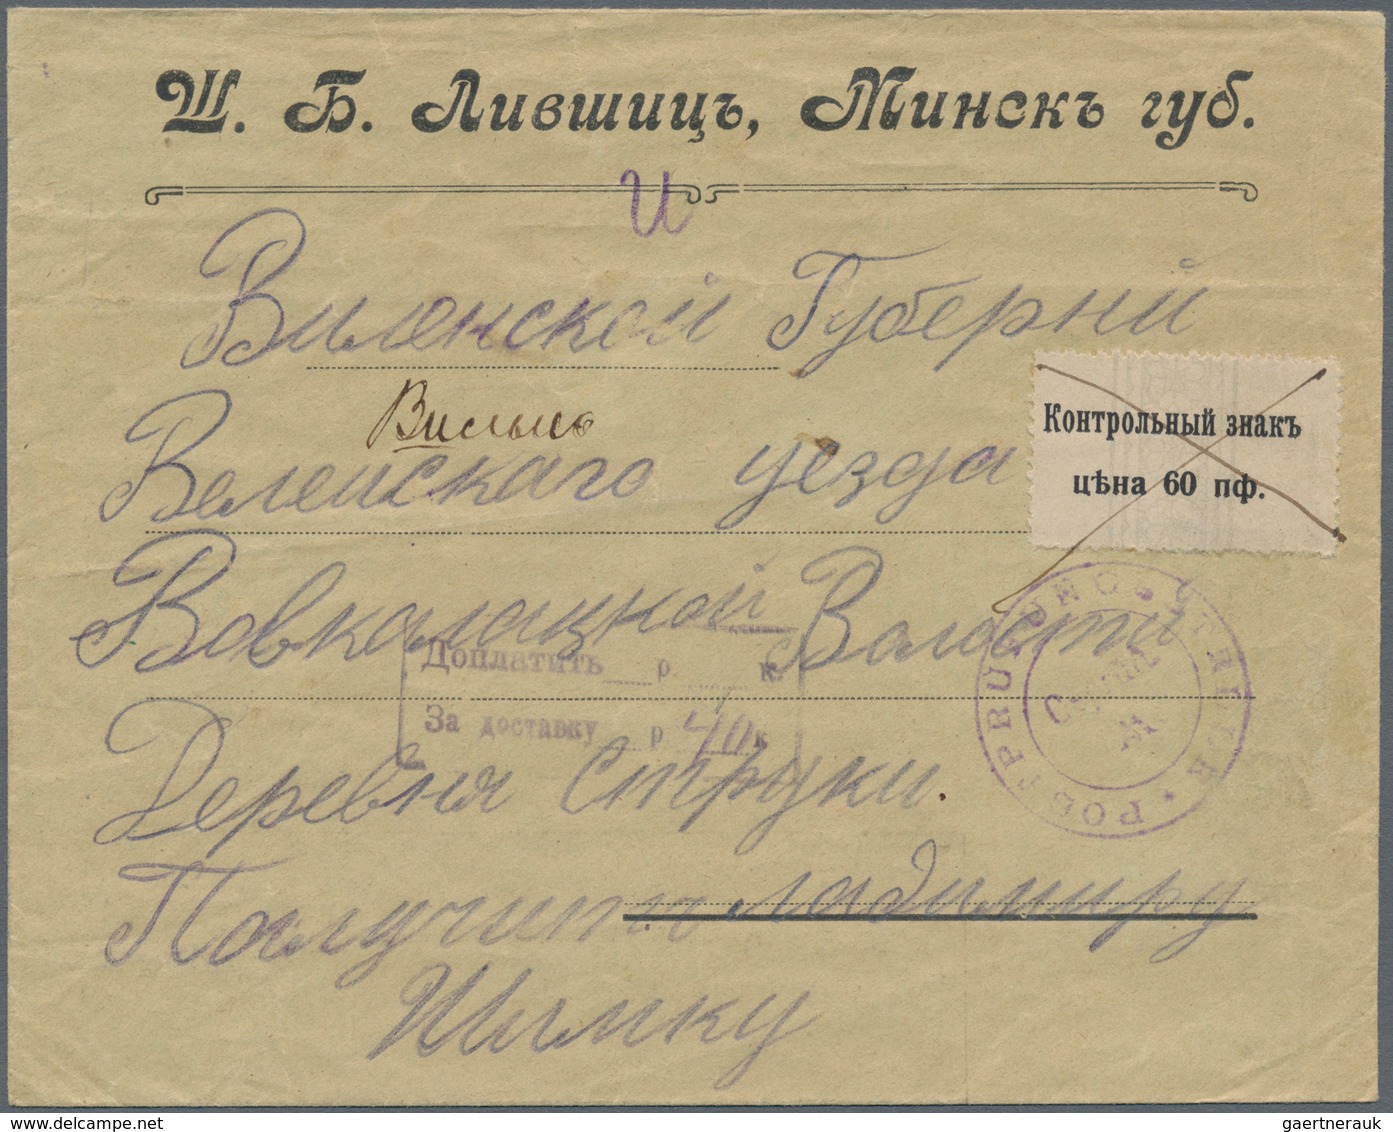 Ш. Б. Лившицъ, Минскъ губ.
и
Виленской Губерни
Велейскаго уезда
Контрольный знакъ
цѣна 60 пф.
Вовкалацкой Валасти
Доплатить р. к.
За доставку р 40 к
Деревня Струки.
Палучить ладимиру
Шымку
gaertnerauk